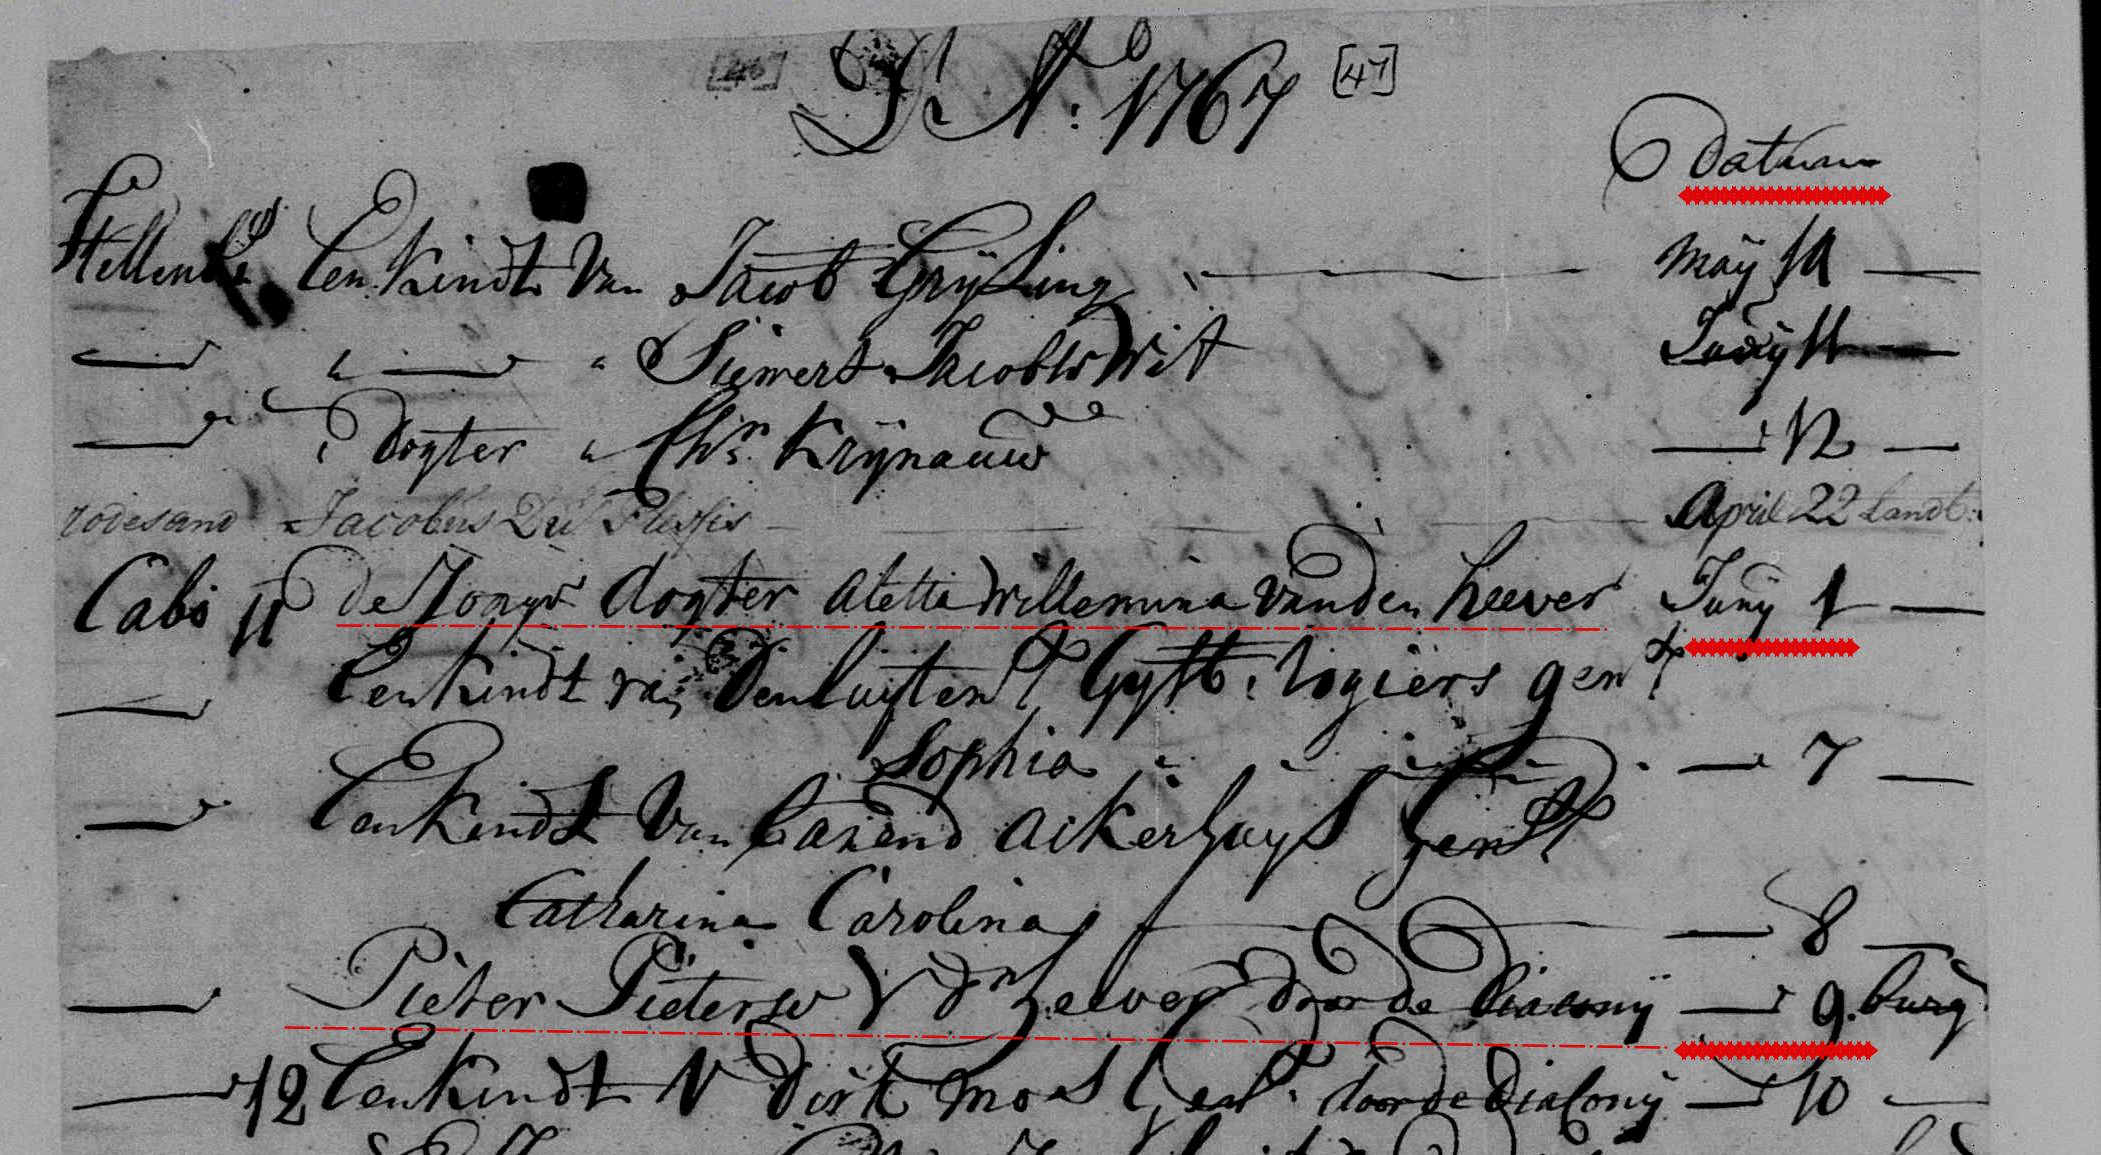 Aº 1767 [47]
Datum
Stellenb: Een Kindt Van Jacob Grÿling Maÿ 19
" " Siewert Jacobsw Wit Junÿ 11
" Dogter " Chr: Krÿnauw 12
rodesand Jacobus Du Plessis April 22 Landt:
Cabo 11 de Jonge dogter Aletta Willemina Vanden heever Junÿ 1
Een kindt van Den luÿtent Gÿsb: rogiers gent
Sophia 7
Een Kindt Van Barend Ackerhuÿs gent
Catharina Carolina 8
Pieter Pietersw V dn heever door de Diaconÿ 9 burg
12 Een kindt V Dirk mos gent: door de Diaconÿ 10